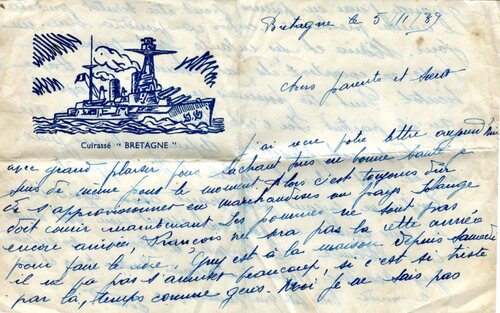 Bretagne le 5/11/39
chers parents et soeur
Cuirassé "BRETAGNE"
j'ai recu votre lettre aujourd'hui
avec grand plaisir vous sachant tous en bonne santé je
suis de même pour le moment Alors c'est toujours dur
de s'approvisionner en marchandises au pays Solange
doit courir maintenant. Les pommes ne sont pas
encore arrivées, François ne sera pas la cette année
pour faire le cidre, est à la maison depuis samedi
il ne va pas s'amuser beaucoup, si c'est si triste
par la, temps comme gens. Moi je ne sais pas